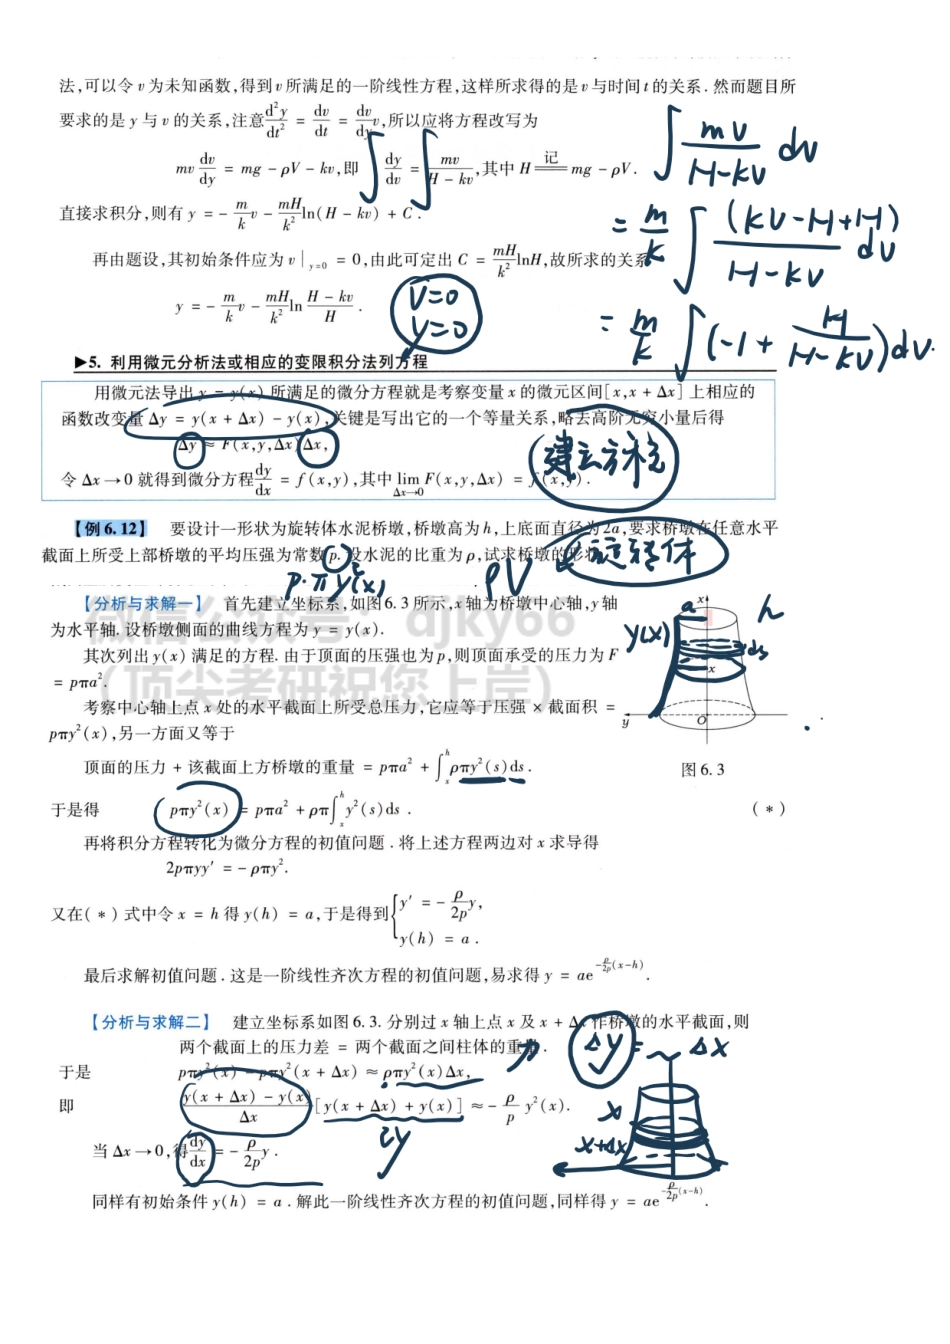 法,可以令v为未知函数,得到v所满足的一阶线性方程,这样所求得的是v与时间t的关系.然而题目所
要求的是y与v的关系,注意d²y/dt² = dv/dt = dv/dy v,所以应将方程改写为
mv dv/dy = mg - ρV - kv,即 ∫ dy/dv = ∫ mv/(H - kv),其中 H 记 mg - ρV.
∫ mv/(H-kv) dv
直接求积分,则有 y = - m/k v - mH/k² ln(H - kv) + C.
= m/k ∫ (kv-H+H)/(H-kv) dv
再由题设,其初始条件应为 v|y=0 = 0,由此可定出 C = mH/k² lnH,故所求的关系
y = - m/k v - mH/k² ln (H - kv)/H .
v=0
y=0
= m/k ∫ (-1 + H/(H-kv)) dv.
▶5. 利用微元分析法或相应的变限积分法列方程
用微元法导出 y = y(x) 所满足的微分方程就是考察变量 x 的微元区间[x,x + Δx] 上相应的
函数改变量 Δy = y(x + Δx) - y(x),关键是写出它的一个等量关系,略去高阶无穷小量后得
Δy ≈ F(x,y,Δx)Δx,
(建立方程)
令 Δx → 0 就得到微分方程 dy/dx = f(x,y),其中 lim Δx→0 F(x,y,Δx) = f(x,y).
【例 6.12】 要设计一形状为旋转体水泥桥墩,桥墩高为h,上底面直径为2a,要求桥墩在任意水平
截面上所受上部桥墩的平均压强为常数p.设水泥的比重为ρ,试求桥墩的形状
旋转体
p·π y²(x)
ρV
【分析与求解一】 首先建立坐标系,如图6.3所示,x轴为桥墩中心轴,y轴
为水平轴.设桥墩侧面的曲线方程为 y = y(x).
其次列出 y(x) 满足的方程.由于顶面的压强也为p,则顶面承受的压力为F
= pπa².
考察中心轴上点 x 处的水平截面上所受总压力,它应等于压强 × 截面积 =
pπy²(x),另一方面又等于
顶面的压力 + 该截面上方桥墩的重量 = pπa² + ∫ₓʰ ρπy²(s)ds .
x
a
h
y(x)
ds
x
y
O
图 6.3
于是得 pπy²(x) = pπa² + ρπ∫ₓʰ y²(s)ds . (*)
再将积分方程转化为微分方程的初值问题.将上述方程两边对 x 求导得
2pπyy′ = - ρπy².
又在(*)式中令 x = h 得 y(h) = a,于是得到 { y′ = - ρ/2p y,
y(h) = a .
最后求解初值问题.这是一阶线性齐次方程的初值问题,易求得 y = ae^(-ρ/2p (x-h)) .
【分析与求解二】 建立坐标系如图6.3.分别过 x 轴上点 x 及 x + Δx 作桥墩的水平截面,则
两个截面上的压力差 = 两个截面之间柱体的重量.
于是 pπy²(x) - pπy²(x + Δx) ≈ ρπy²(x)Δx,
即 (y(x + Δx) - y(x))/Δx [y(x + Δx) + y(x)] ≈ - ρ/p y²(x).
2y
Δy = Δx
x
x+Δx
当 Δx → 0,得 dy/dx = - ρ/2p y .
同样有初始条件 y(h) = a .解此一阶线性齐次方程的初值问题,同样得 y = ae^(-ρ/2p (x-h)) .
微信公众号 djky66
(顶尖考研祝您上岸)